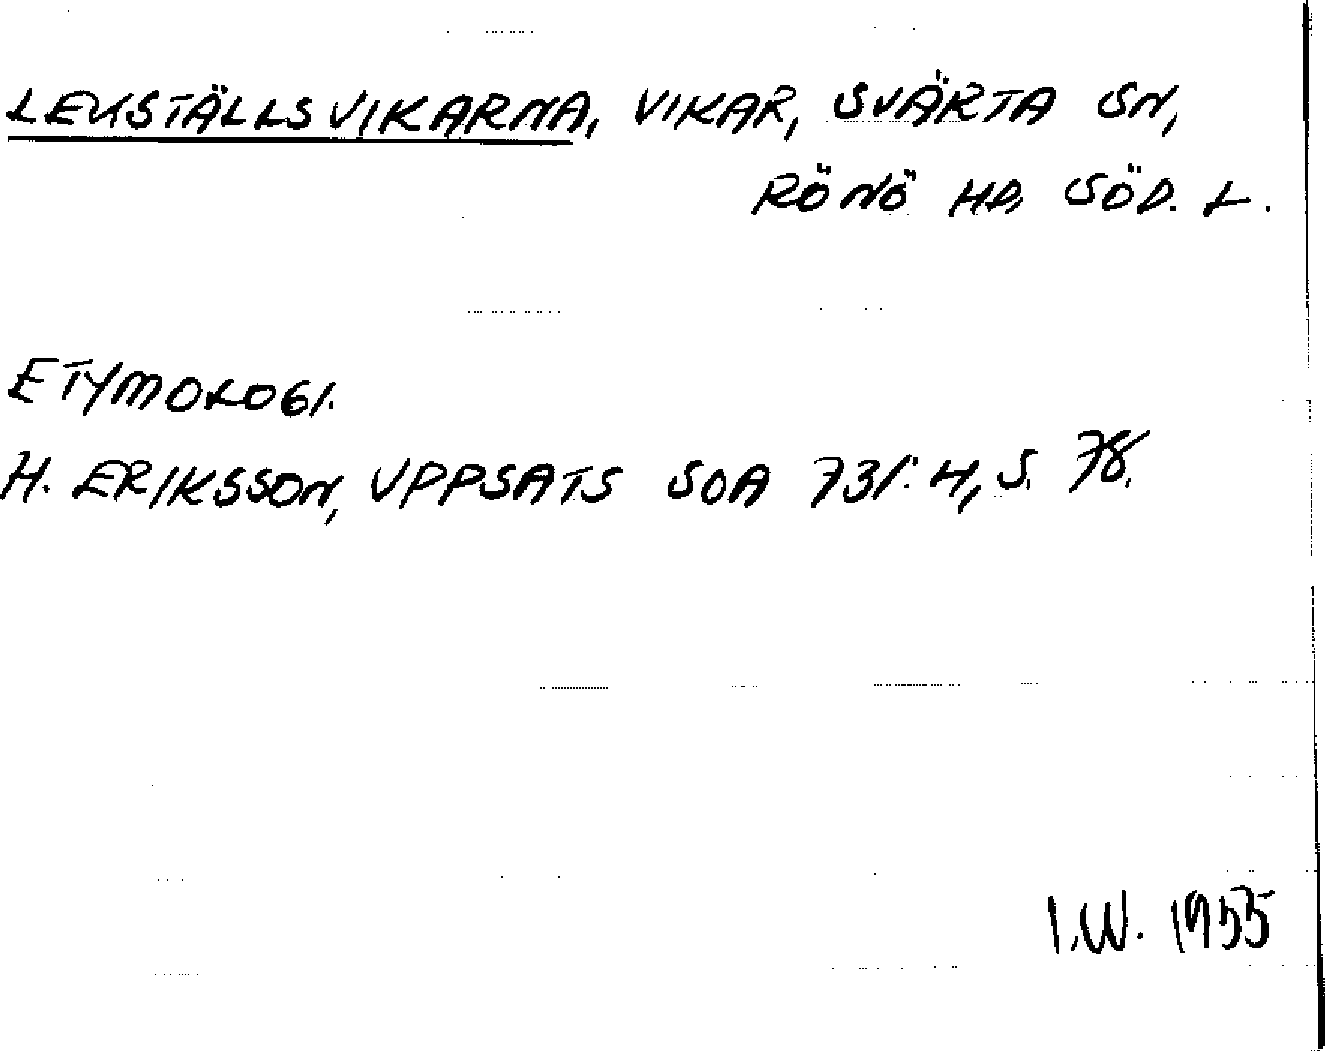 LEKSTÄLLSVIKARNA, VIKAR, SVÄRTA SN,
RÖNÖ HD, SÖD. L.
ETYMOLOGI.
H. ERIKSSON, UPPSATS SOA 731:4, S. 78.
I.W. 1955